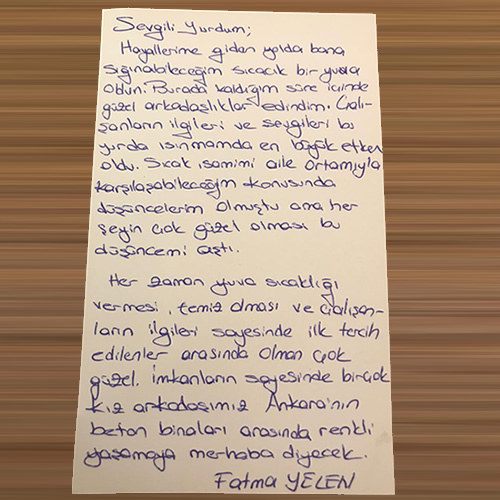 Sevgili Yurdum;
Hayallerime giden yolda bana
sığınabileceğim sıcacık bir yuva
oldun. Burada kaldığım süre içinde
güzel arkadaşlıklar edindim. Çalı-
şanların ilgileri ve sevgileri bu
yurda ısınmamda en büyük etken
oldu. Sıcak, samimi aile ortamıyla
karşılaşabileceğim konusunda
düşüncelerim olmuştu ama her
şeyin çok güzel olması bu
düşüncemi aştı.
Her zaman yuva sıcaklığı
vermesi, temiz olması ve çalışan-
ların ilgileri sayesinde ilk tercih
edilenler arasında olman çok
güzel. İmkanların sayesinde birçok
kız arkadaşımız Ankara'nın
beton binaları arasında renkli
yaşamaya merhaba diyecek.
Fatma YELEN